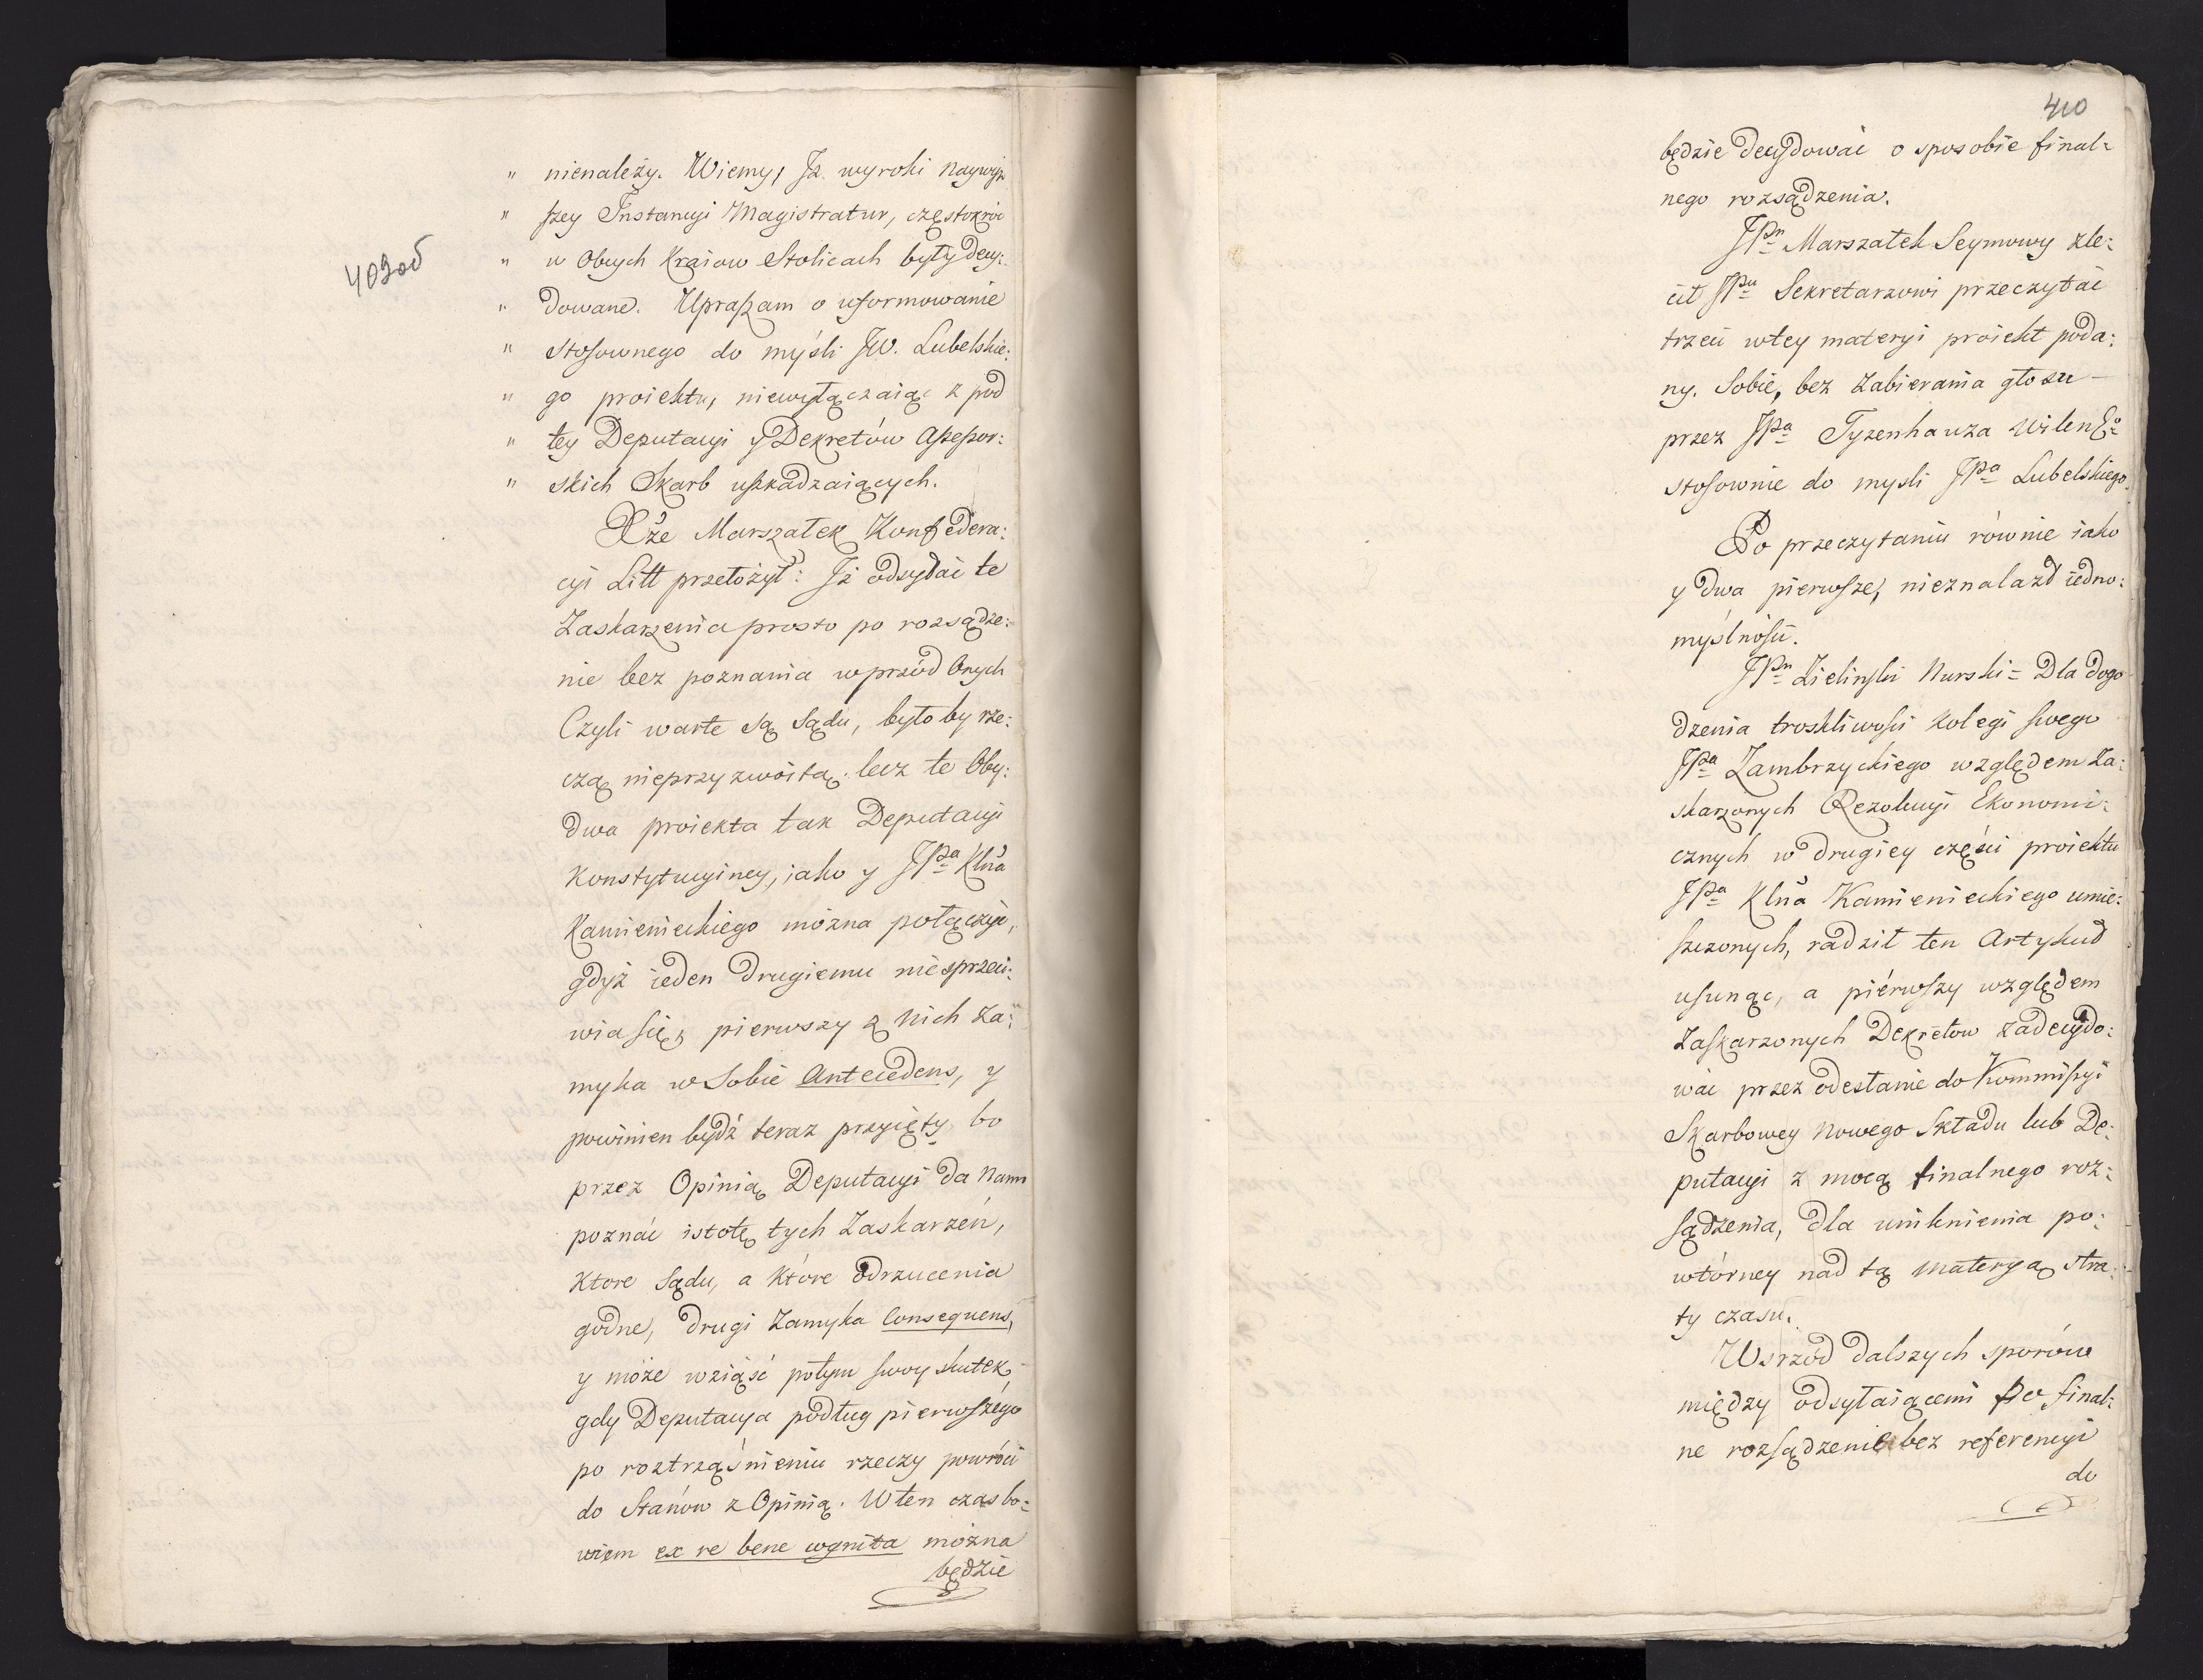 409об
" nienależy. Wiemy, Jż wyroki Naywyż
" szey Instancyi Magistratur, częstokroć
" w Obcych Kraiow Stolicach były decy:
" dowane. Upraszam o uformowanie
" stosownego do myśli JW. Lubelskie:
" go proiektu, niewyłączaiąc z pod
" tey Deputacyi y Dekretów Assessor:
" skich Skarb uszkadzaiących.
Xże Marszałek Konfedera:
cyi Litt przełożył: Jż odsyłać te
Zaskarzenia prosto po rozsądze:
nie bez poznania wprzód Onych
Czyli warte są Sądu, było by rze:
czą nieprzyzwoitą. lecz te Oby:
dwa proiekta tak Deputacyi
Konstytucyiney, iako y JPa Klna
Kamienieckiego można połączyć,
gdyż ieden drugiemu nie sprzeci:
wia się, pierwszy z Nich za:
myka w Sobie Antecedens, y
powinien bydź teraz przyięty, bo
przez Opinią Deputacyi da Nam
poznać istotę tych Zaskarzeń,
Ktore Sądu, a Które Odrzucenia
godne, drugi Zamyka Consequens,
y może wziąść potym swoy skutek,
gdy Deputacya podług pierwszego
po roztrząśnieniu rzeczy powróci
do Stanów z Opinią. W ten czas bo:
wiem ex re bene cognita można
będzie
410
będzie decydować o sposobie final:
nego rozsądzenia.
JPn Marszałek Seymowy zle:
cił JPu Sekretarzowi przeczytać
trzeci w tey materyi proiekt poda:
ny. Sobie, bez Zabierania głosu
przez JPa Tyzenhauza Wileńgo
stosownie do mysli JPa Lubelskiego.
Po przeczytaniu równie iako
y dwa pierwsze, nieznalazł iedno:
myślności.
JPn Zielinski Nurski = Dla dogo
dzenia troskliwości Kolegi swego
JPa Zambrzyckiego względem Za:
skarzonych Rezolucyi Ekonomi:
cznych w drugiey części proiektu
JPa Klna Kamienieckiego umie:
szczonych, radził ten Artykuł
usunąć, a piérwszy względem
Zaskarzonych Dekretow zadecydo:
wać przez odesłanie do Kommissyi
Skarbowey Nowego Składu lub De:
putacyi z mocą finalnego roz:
sądzenia, dla uniknienia po:
wtórney nad tą materyą stra:
ty czasu.
Wsrzód dalszych sporów
między odsyłaiącemi po final:
ne rozsądzenie bez referencyi
do